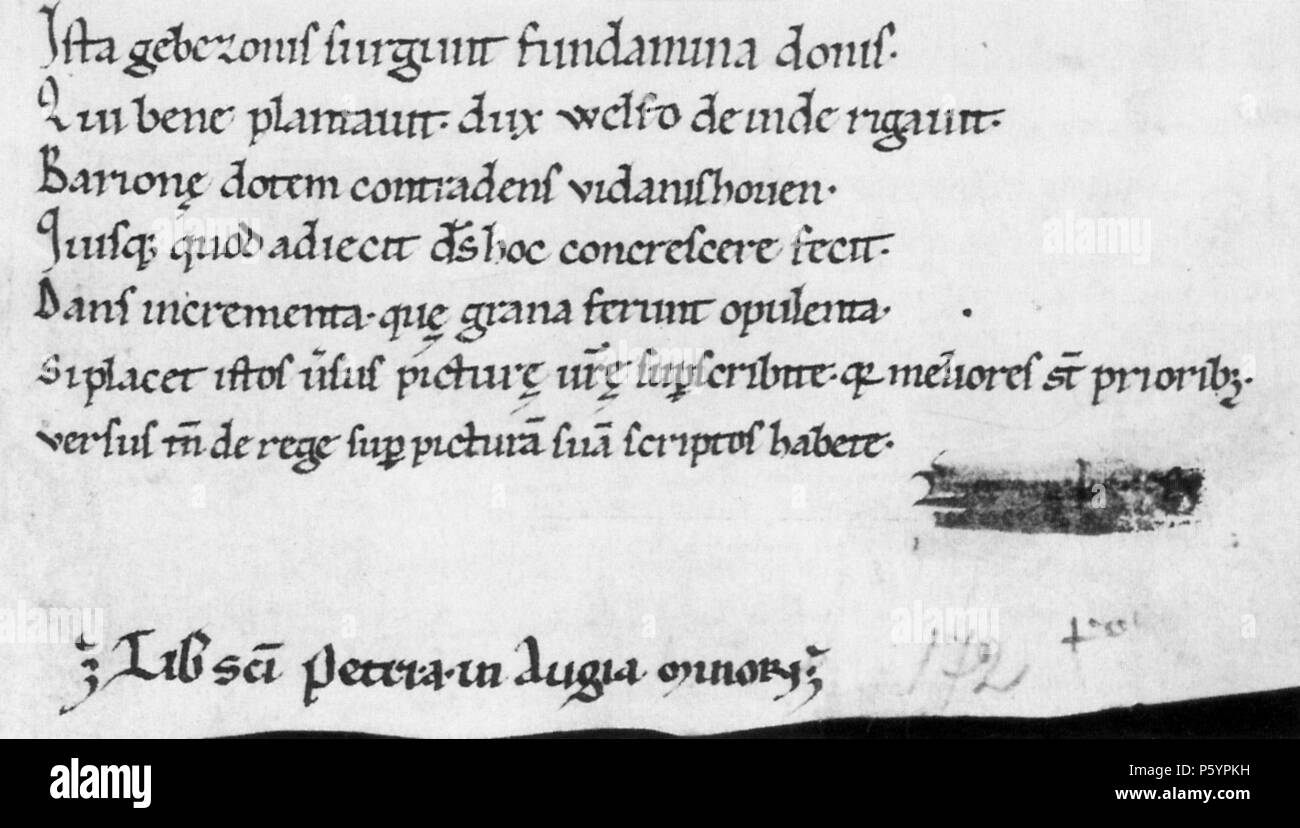 Ista gebezonis surgunt fundamina donis·
Qui bene plantauit· dux welfo de inde rigauit·
Barionę dotem contradens vidanishouen·
Quisq; quod adiecit d̅s hoc concrescere fecit·
Dans incrementa· quę grana ferunt opulenta·
Si placet istos ūsus picturę ur̅ę suꝑscribite· qꝛ meliores st̅ prioribꝫ·
versus tn̅ de rege suꝑ picturā suā scriptos habete·
Lib̅ sc̅i Petri· in Augia minori
172
alamy
Image ID: P5YPKH
www.alamy.com